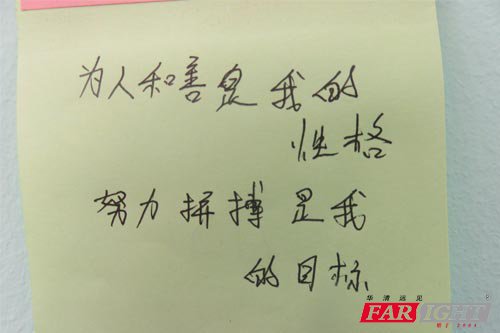 为人和善是我的
性格
努力拼搏是我
的目标
华清远见
FARSIGHT
始于2004